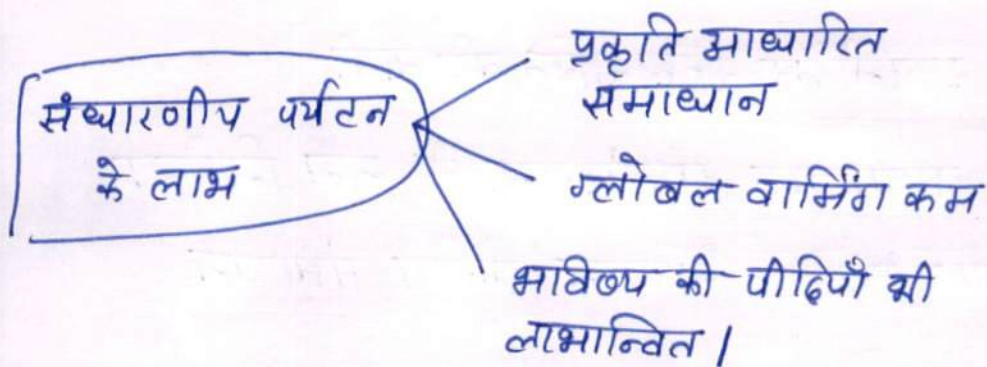 संधारणीय पर्यटन
के लाभ
प्रकृति आधारित
समाधान
ग्लोबल वार्मिंग कम
भविष्य की पीढ़ियाँ भी
लाभान्वित।